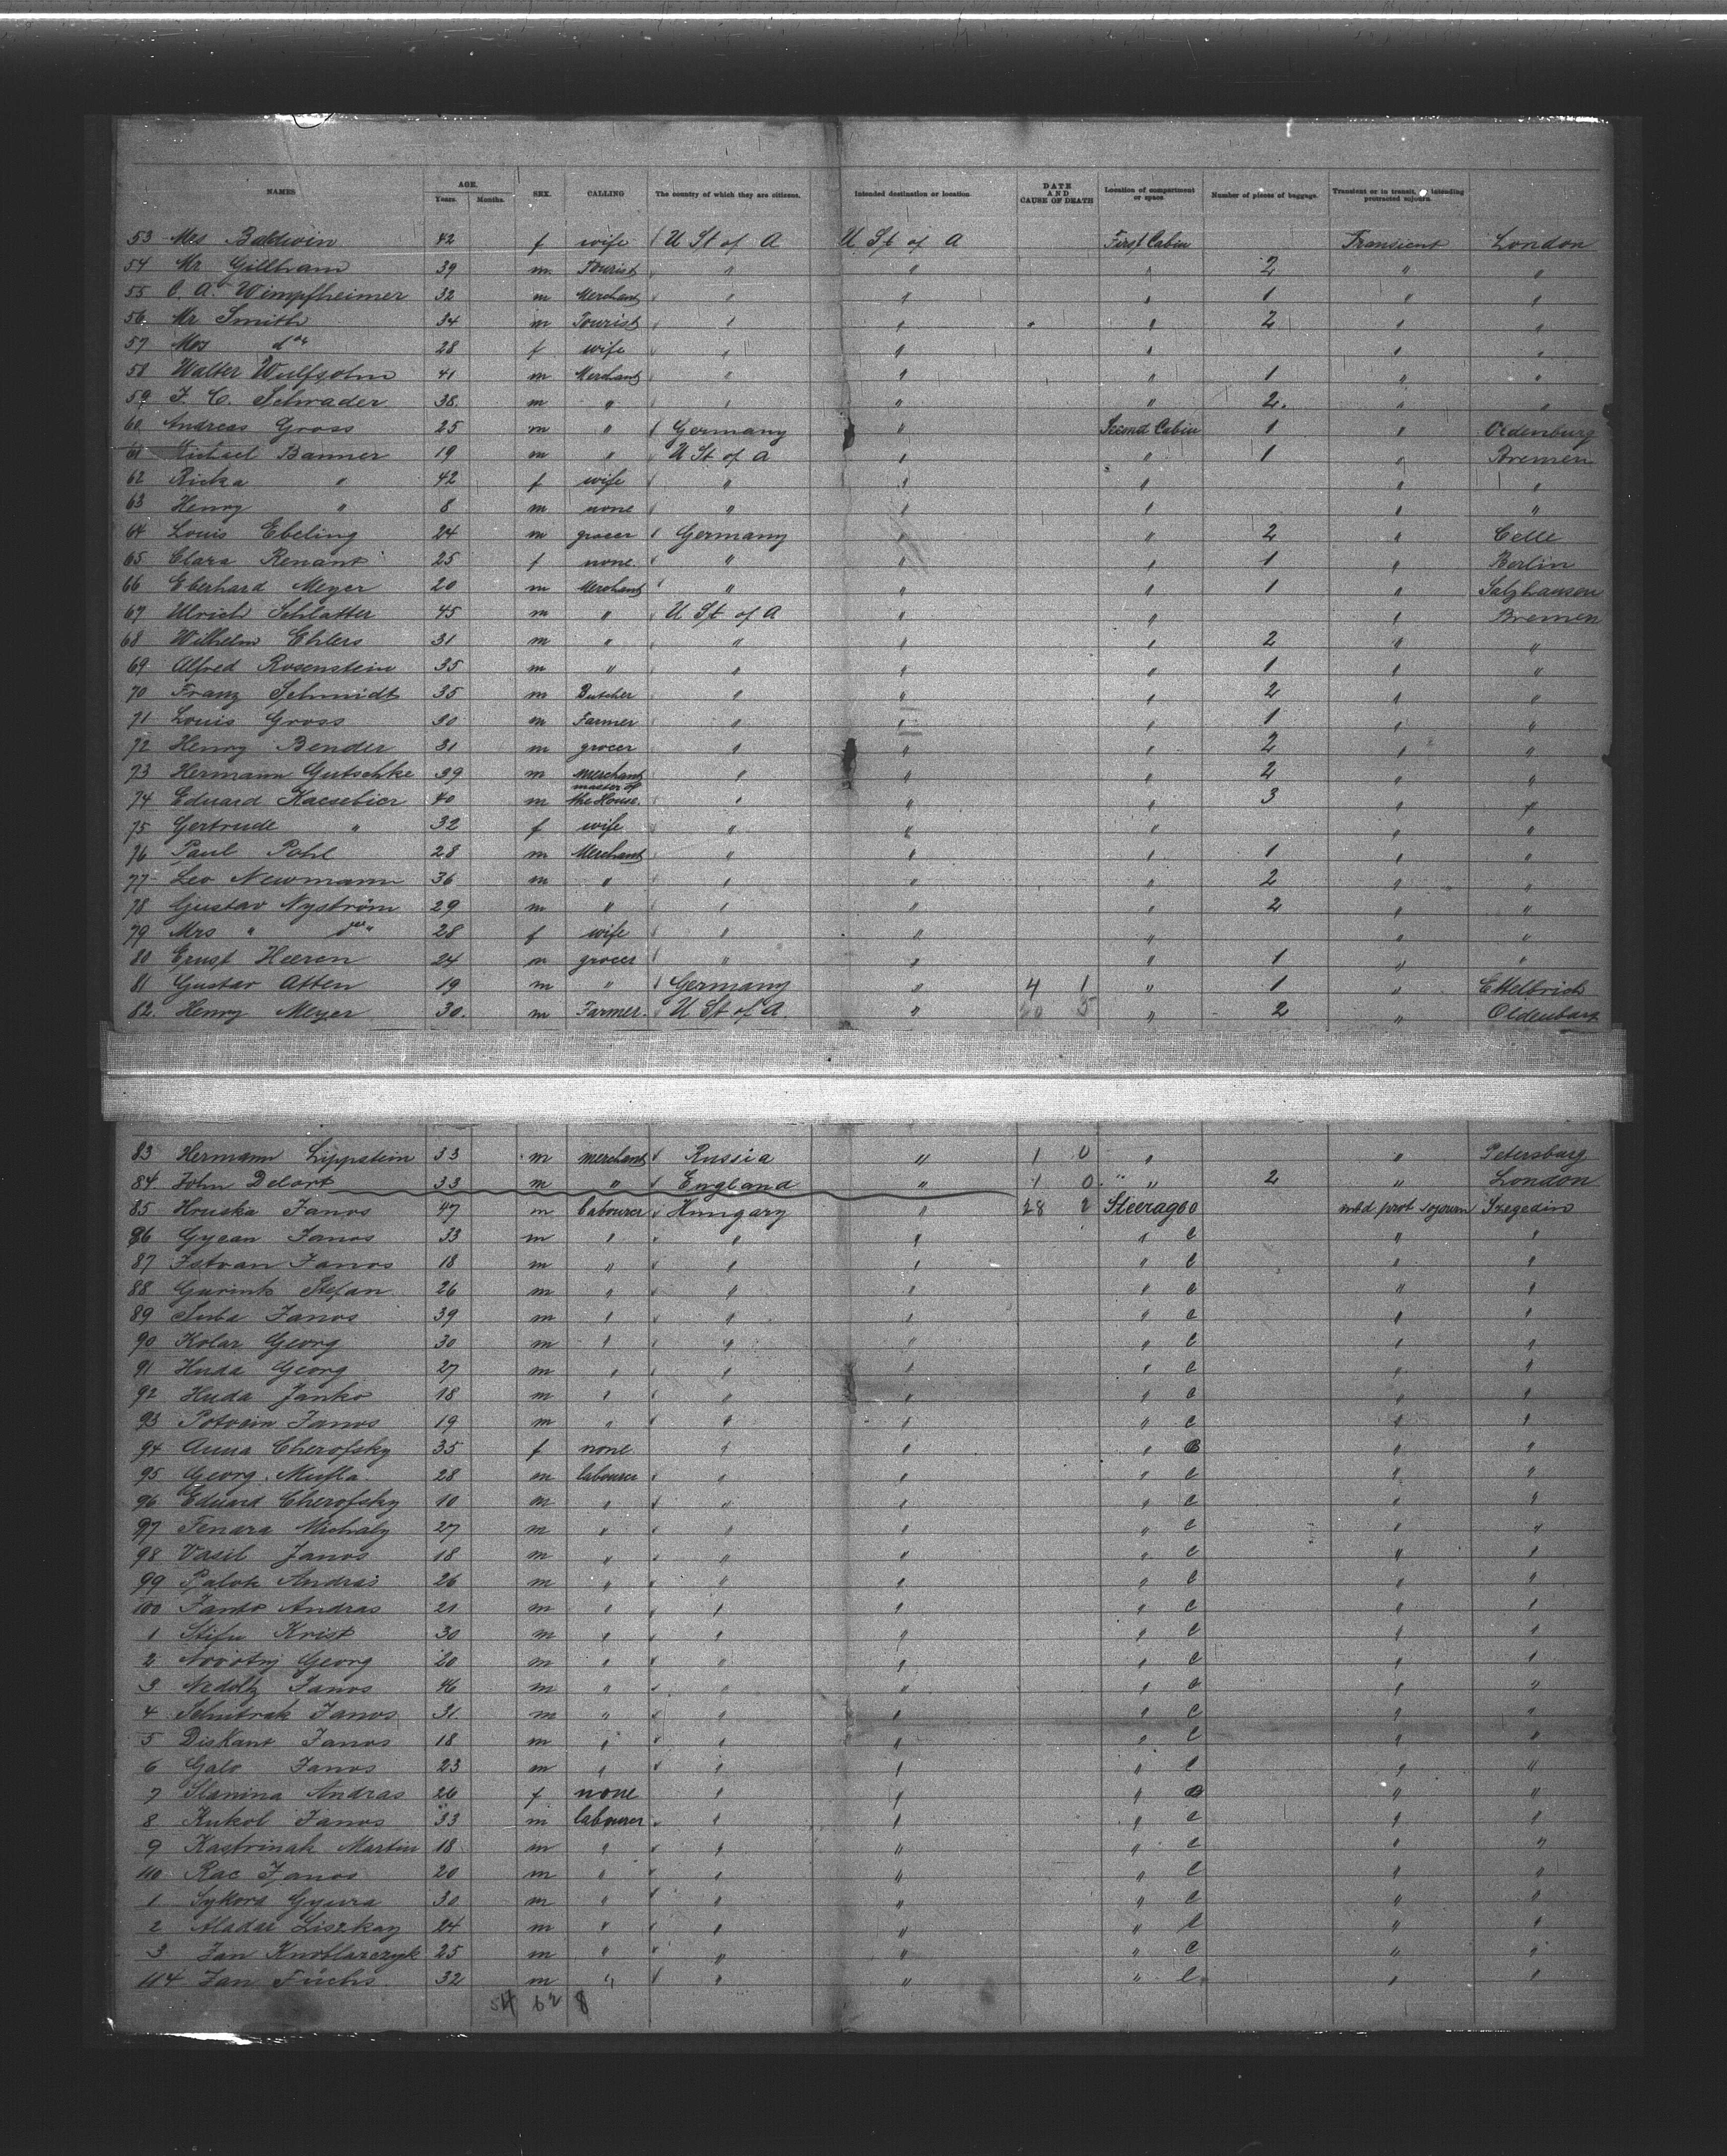 NAMES AGE. Years. Months. SEX. CALLING The country of which they are citizens. Intended destination or location. DATE AND CAUSE OF DEATH Location of compartment or space. Number of pieces of baggage. Transient or in transit, or intending protracted sojourn.
53 Mrs Baldwin 42 f wife U St of A U St of A First Cabin Transient London
54 Mr Gillham 39 m Tourist " " " 2 " "
55 C. A. Wimpfheimer 32 m Merchant " " " 1 " "
56 Mr Smith 34 m Tourist " " " 2 " "
57 Mrs do " 28 f wife " " " " "
58 Walter Wulfsohn 41 m Merchant " " " 1 " "
59 F. C. Schrader 38. m " " " " 2. " "
60 Andreas Gross 25 m " Germany " Second Cabin 1 " Oldenburg
61 Michael Banner 19 m " U St of A " " 1 " Bremen
62 Ricka " 42 f wife " " " " "
63 Henry " 8 m none " " " " "
64 Louis Ebeling 24 m grocer Germany " " 2 " Celle
65 Clara Renant 25 f none. " " " 1 " Berlin
66 Eberhard Meyer 20 m Merchant " " " 1 " Salzhausen
67 Ulrich Schlatter 45 m " U St of A " " " Bremen
68 Wilhelm Ehlers 31 m " " " " 2 " "
69 Alfred Rosenstein 35 m " " " " 1 " "
70 Franz Schmidt 35 m Butcher " " " 2 " "
71 Louis Gross 30 m Farmer " " " 1 " "
72 Henry Bender 31 m grocer " " " 2 " "
73 Hermann Gutschke 39 m merchant " " " 2 " "
74 Eduard Kaesebier 40 m master of the House. " " " 3 " "
75 Gertrude " 32 f wife " " " " "
76 Paul Pohl 28 m Merchant " " " 1 " "
77 Leo Newmann 36 m " " " " 2 " "
78 Gustav Nyström 29 m " " " " 2 " "
79 Mrs " do " 28 f wife " " " " "
80 Ernst Heeren 24 m grocer " " " 1 " "
81 Gustav Atten 19 m " Germany " 4 1 " 1 " Ettelbrick
82. Henry Meyer 30. m Farmer. U St of A. " 20 5 " 2 " Oldenburg
83 Hermann Lippstein 33 m merchant Russia " 1 0 " " Petersburg
84 John Delort 33 m " England " 1 0 " 2 " London
85 Hruska Janos 47 m labourer Hungary " 28 2 Steerage C prot sojourn Szegedin
86 Gyean Janos 33 m " " " " C " "
87 Istvan Janos 18 m " " " " C " "
88 Gurink Stefan 26 m " " " " C " "
89 Suba Janos 39 m " " " " C " "
90 Kolar Georg 30 m " " " " C " "
91 Huda Georg 27 m " " " " C " "
92 Huda Janko 18 m " " " " C " "
93 Potocin Janos 19 m " " " " C " "
94 Anna Cherofsky 35 f none " " " B " "
95 Georg Mufla 28 m labourer " " " C " "
96 Eduard Cherofsky 10 m " " " " C " "
97 Fenara Michaly 27 m " " " " C " "
98 Vasil Janos 18 m " " " " C " "
99 Palok Andras 26 m " " " " C " "
100 Janko Andras 21 m " " " " C " "
1 Stifu Krist 30 m " " " " C " "
2 Novotnj Georg 20 m " " " " C " "
3 Janos 46 m " " " " C " "
4 Schutrak Janos 31 m " " " " C " "
5 Diskant Janos 18 m " " " " C " "
6 Galo Janos 23 m " " " " C " "
7 Slanina Andras 26 f none " " " B " "
8 Kukol Janos 33 m labourer " " " C " "
9 Kastrinak Martin 18 m " " " " C " "
110 Rac Janos 20 m " " " " C " "
1 Sykora Gyura 30 m " " " " C " "
2 Aladar Liszkay 24 m " " " " C " "
3 Jan Knoblarczyk 25 m " " " " C " "
114 Jan Fuchs 32 m " " " " C " "
54 62 8